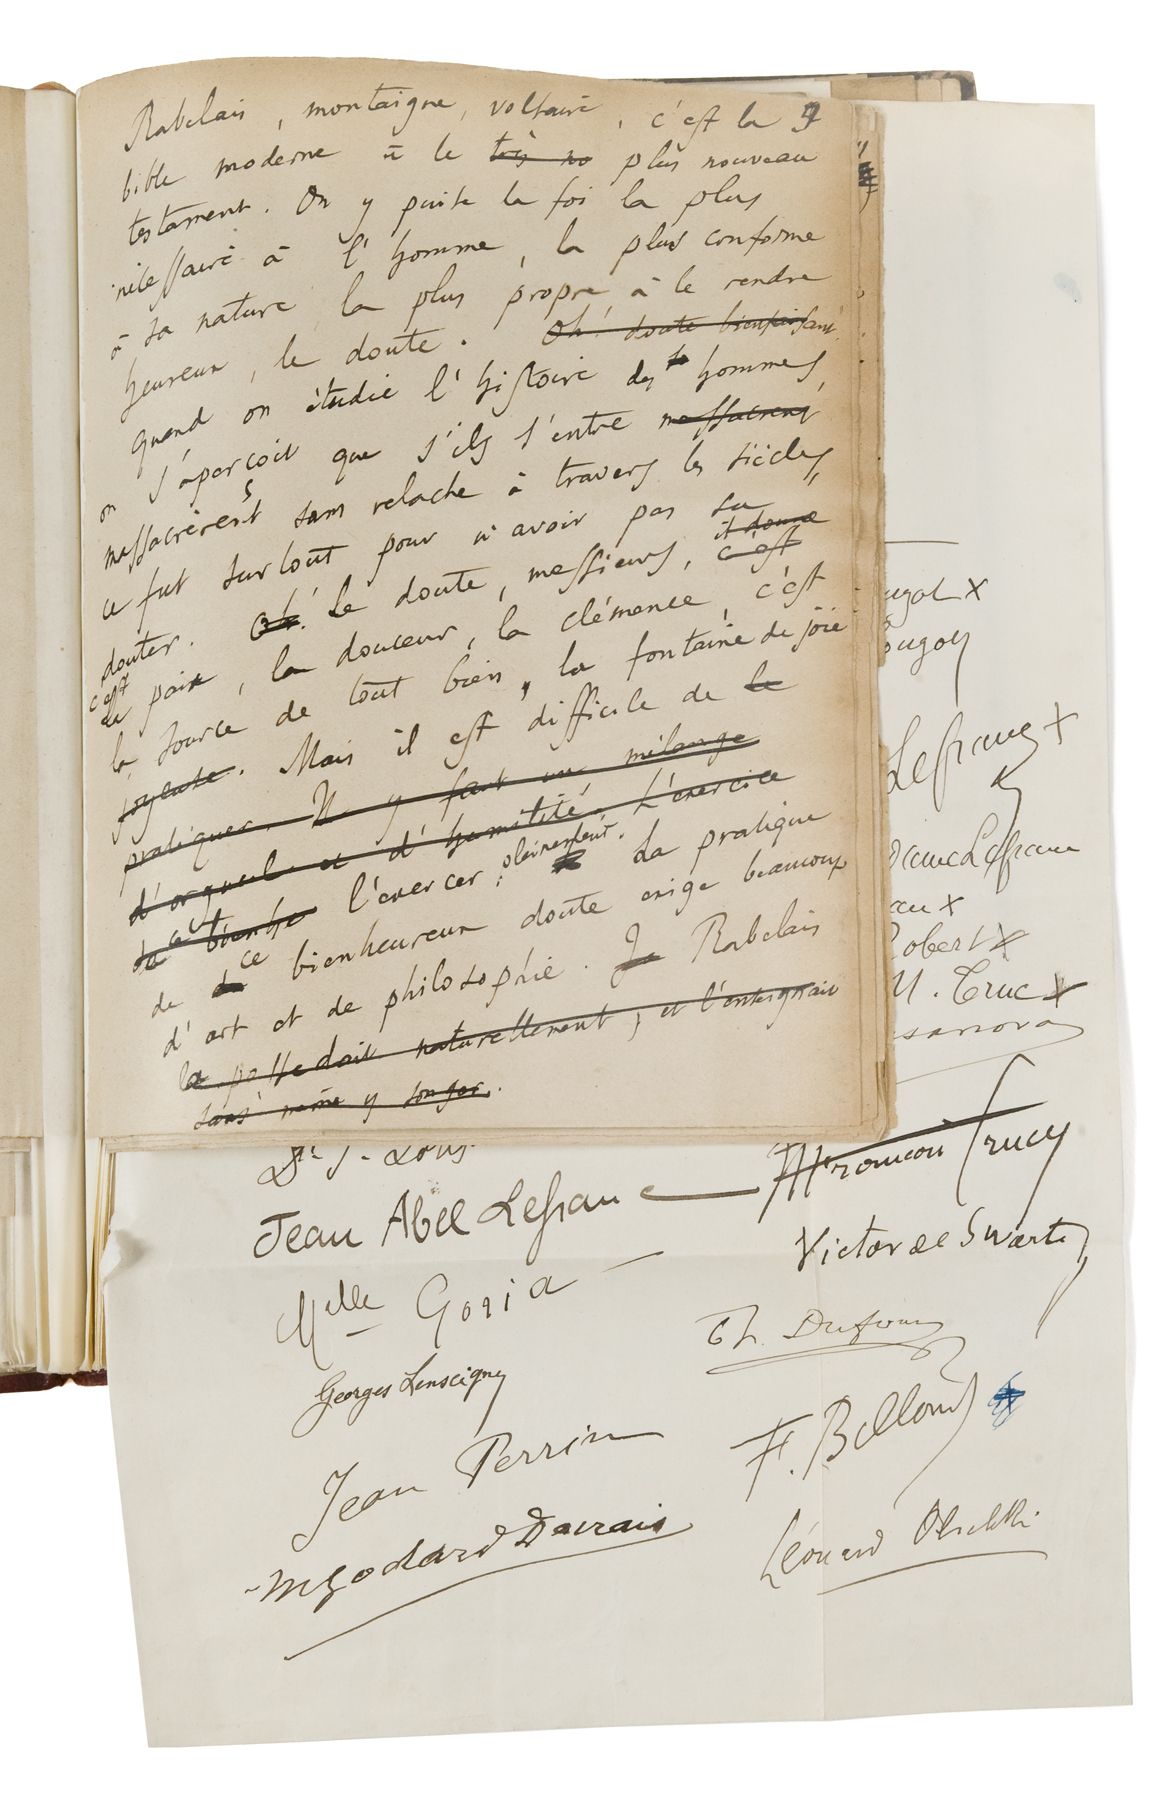 Rabelais, montaigne, voltaire, c'est la 9
bible moderne & le très no plus nouveau
testament. On y puise la foi la plus
nécessaire à l'homme, la plus conforme
à sa nature la plus propre à le rendre
heureux, le doute. Oh! doute bienfaisant
quand on étudie l'histoire des hommes,
on s'aperçoit que s'ils s'entre massacrent
massacrèrent sans relache à travers les siècles,
ce fut surtout pour n'avoir pas su
douter. Oh! Le doute, messieurs, c'est
il donne
c'est
la paix, la douceur, la clémence, c'est
la source de tout bien, la fontaine de joie
joyeuse. Mais il est difficile de le
pratiquer. Il y faut un mélange
d'orgueil et d'humilité. L'exercice
l'exercer pleinement. La pratique
de ce bienheureux doute exige beaucoup
d'art et de philosophie. Rabelais
la possedait naturellement, et l'enseignait
sans même y songer.
ugol x
ougoy
Lefranc x
Lefranc
au x
Robert x
M. Truc x
asanova
Jean Abel Lefranc
Trucy
Victor de Swarte
Melle Goria
Th. Dufour
Georges Lenseigne
F. Belloni
Jean Perrin
Godard Davrais
Léonard Olschki